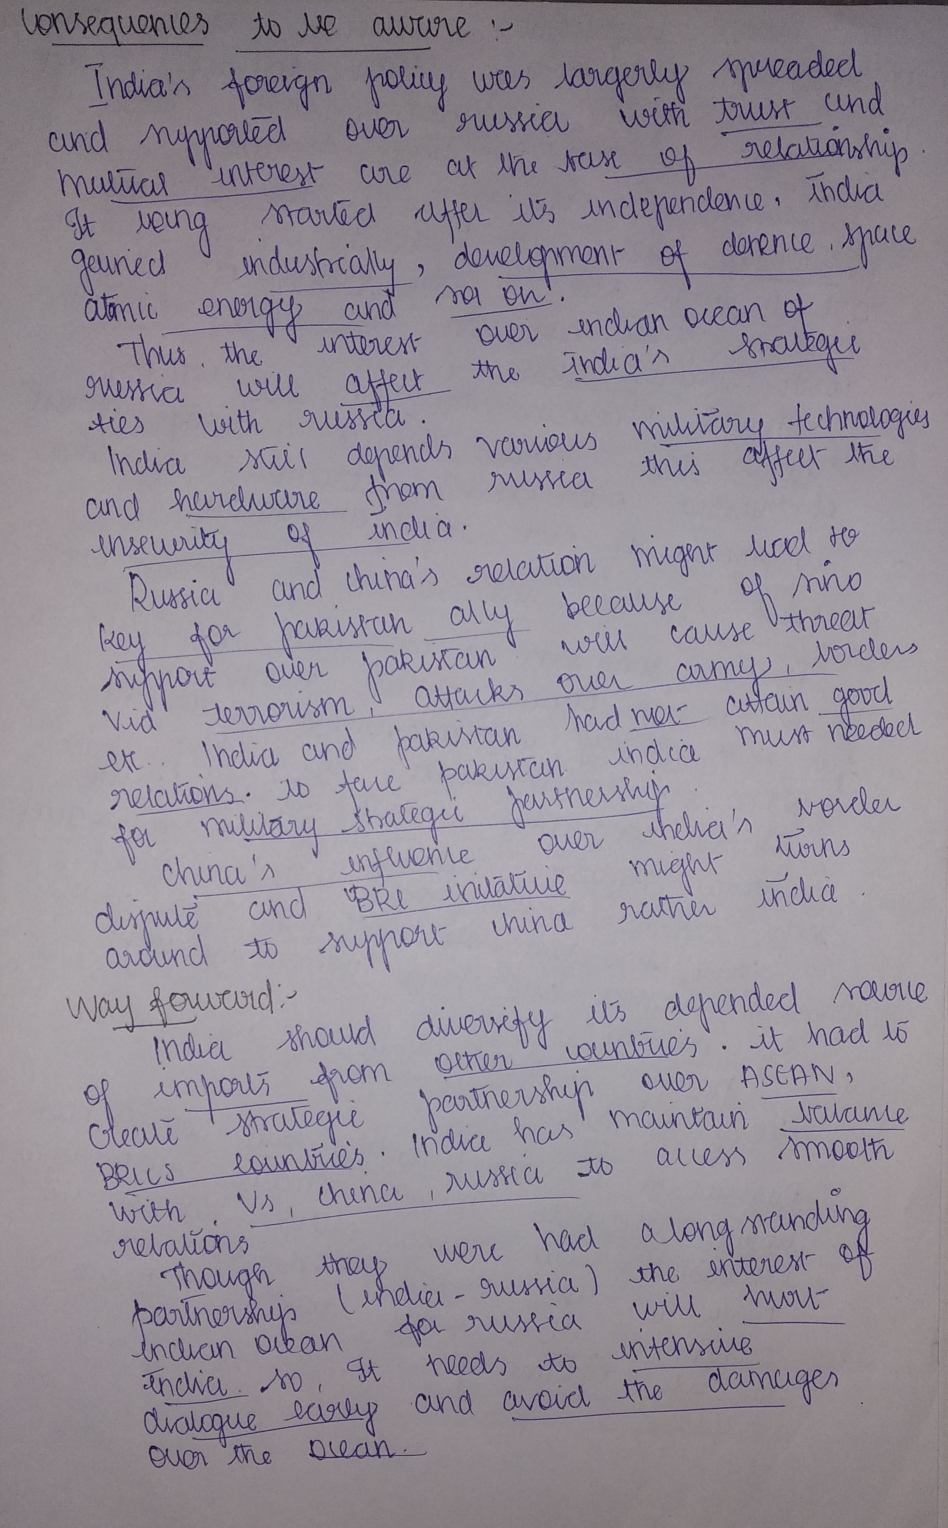 Consequences to be aware :-
India's foreign policy was largerly spreaded
and supported over russia with trust and
mutual interest are at the base of relationship.
It being started after its independence. India
gained industrially, development of defence, space
atmic energy and so on.
Thus, the interest over indian ocean of
russia will affect the india's strategic
ties with russia.
India still depends various military technologies
and hardware from russia this affect the
insecurity of india.
Russia and china's relation might lead to
key for pakistan ally because of sino
support over pakistan will cause threat
via terrorism, attacks over army, borders
etc.. India and pakistan had not attain good
relations. to face pakistan india must needed
for military strategic partnership.
china's influence over india's border
dispute and BRI initative might turns
around to support china rather india.
Way forward:-
India should diversify its depended source
of imports from other countries. it had to
create strategic partnership over ASEAN,
BRICS countries. India has maintain balance
with, US, china, russia to access smooth
relations
Though they were had a long standing
partnership (india - russia) the interest of
indian ocean for russia will hurt
india. so, It needs to intensive
dialogue early and avoid the damages
over the ocean.